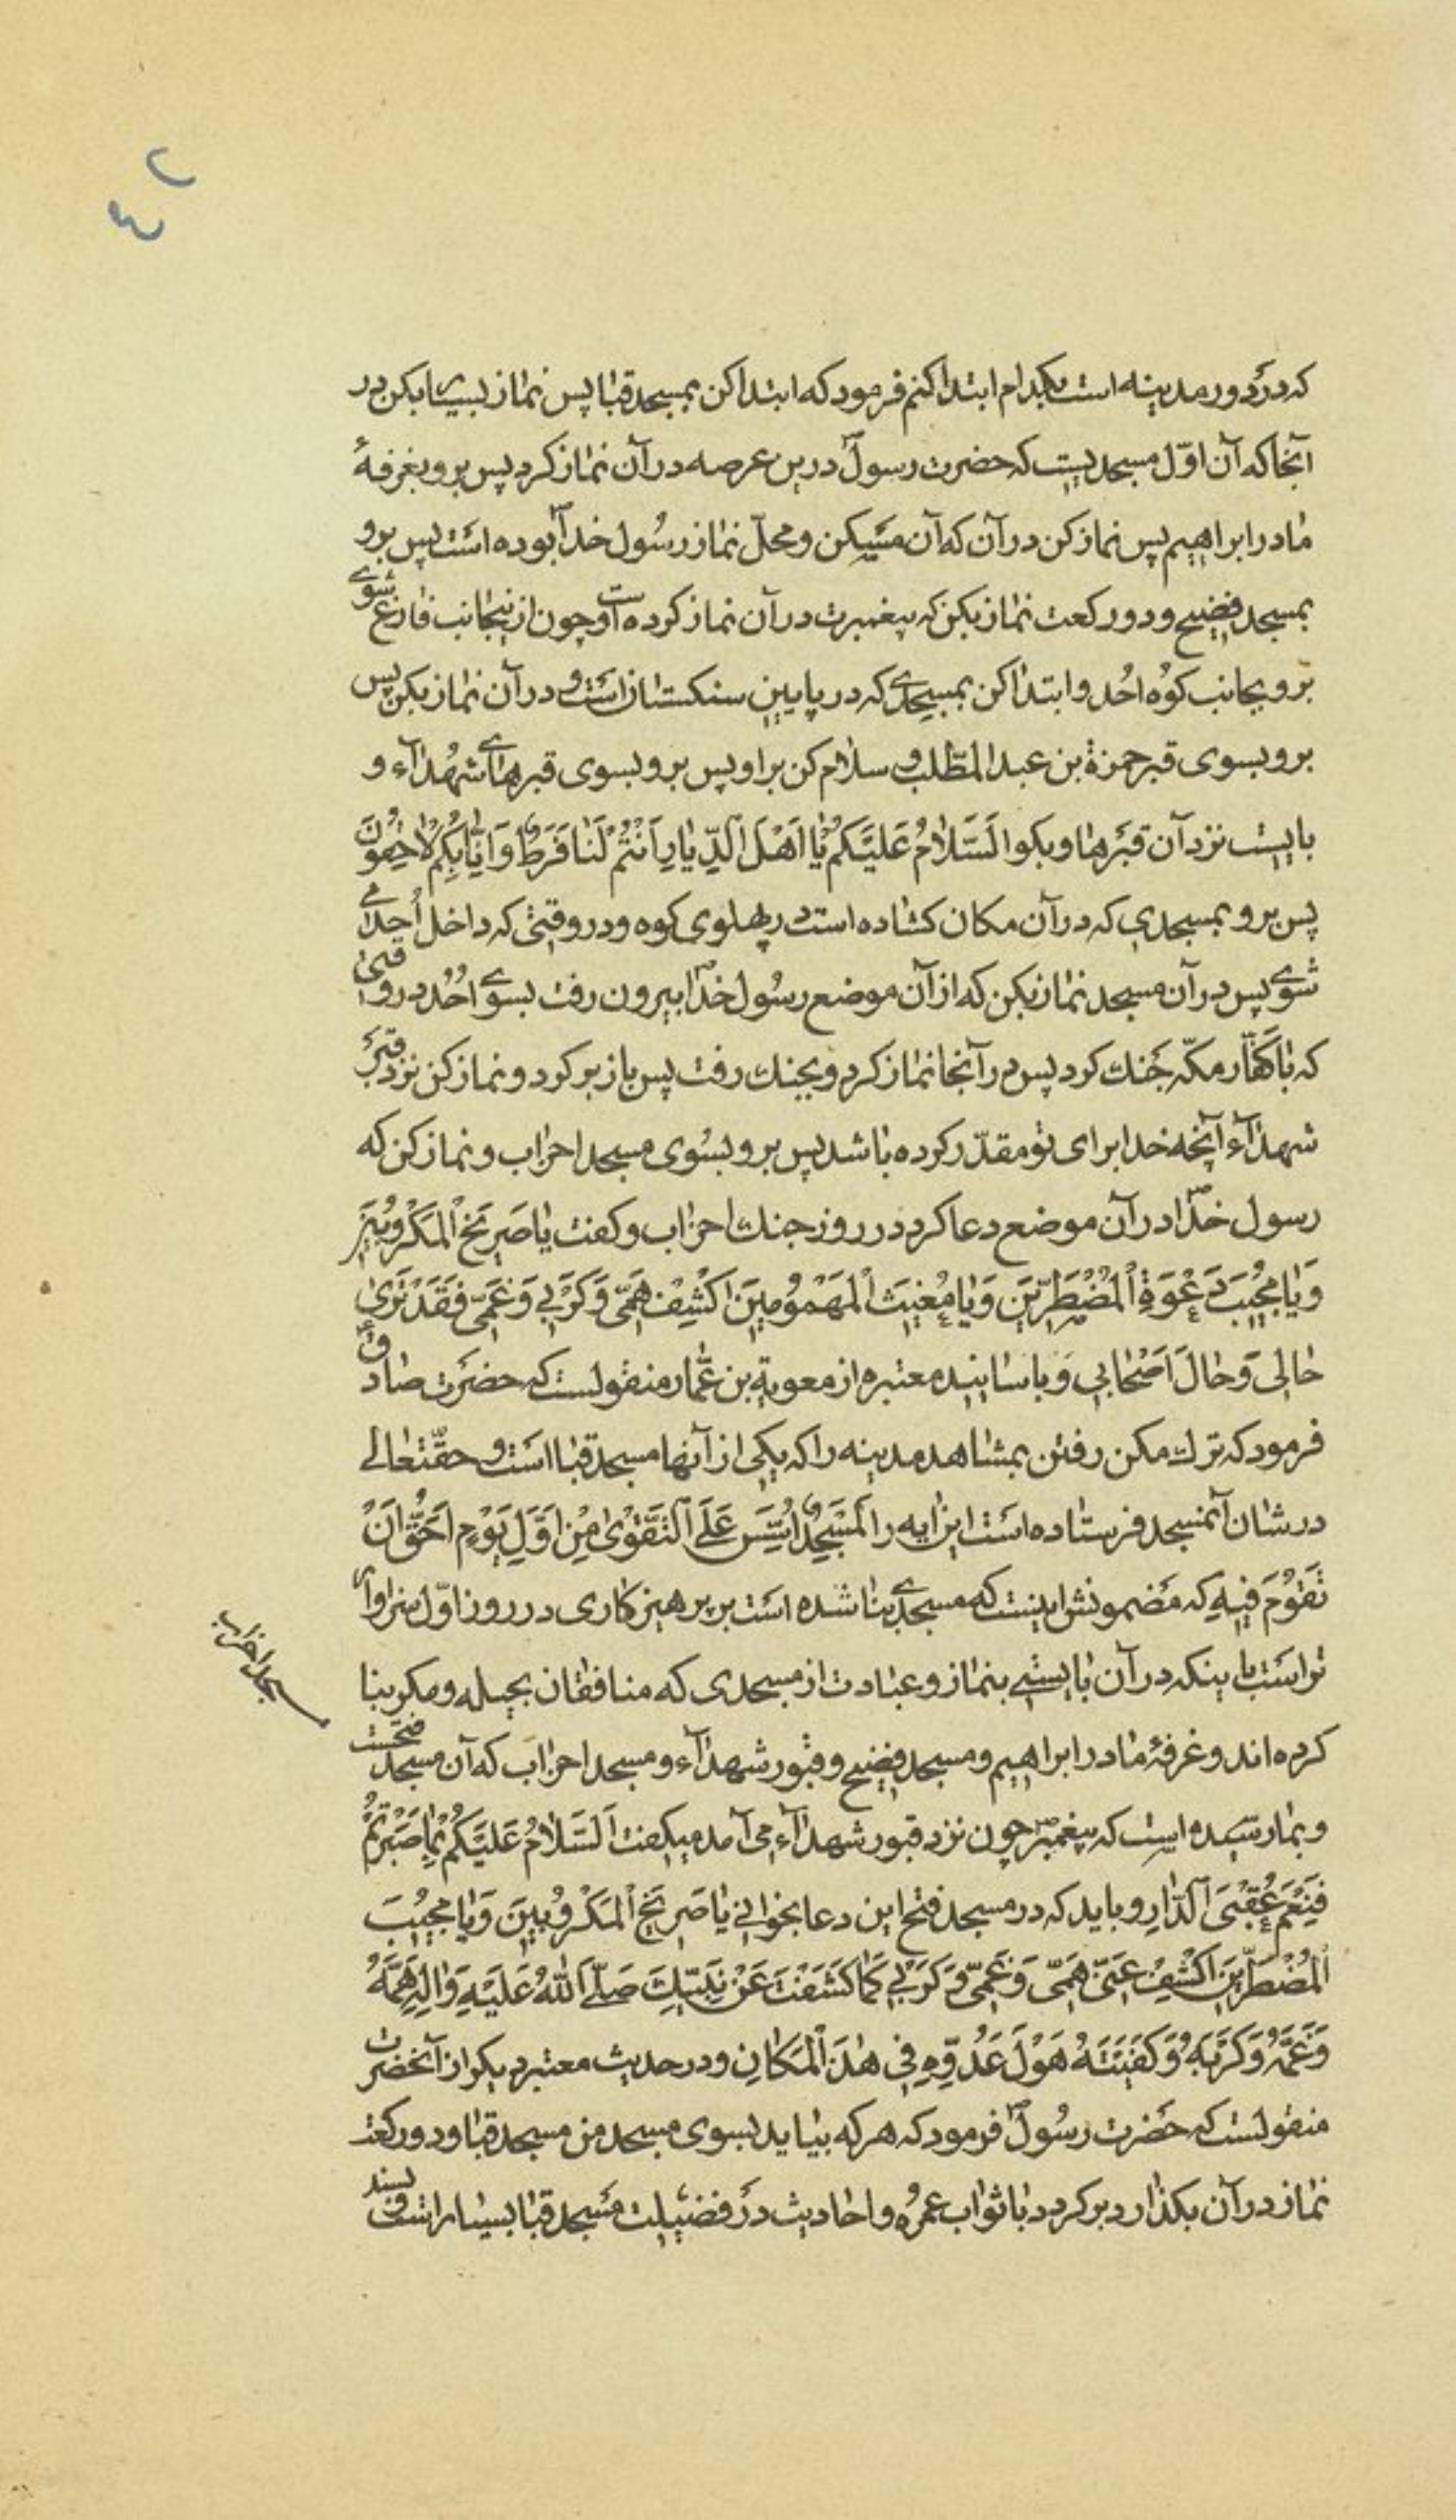 که در دور مدینه است بکدام ابتدا کنم فرمود که ابتدا کن بمسجد قبا پس نماز بسیار بکن در
آنجا که آن اوّل مسجدیست که حضرت رسولؐ درین عرصه در آن نماز کرد پس برو بغرفهٔ
مادر ابراهیم پس نماز کن در آن که آن مسکن و محلّ نماز رسول خداؐ بوده است پس برو
بمسجد فضیح و دو رکعت نماز بکن که پیغمبرت در آن نماز کرده است و چون ازینجانب فارغ شوی
برو بجانب کوه احُد و ابتدا کن بمسجدی که در پایین سنکستان است و در آن نماز بکن پس
برو بسوی قبر حمزة بن عبد المطّلب و سلام کن بر او پس برو بسوی قبرهای شهدآء و
بایست نزد آن قبرها و بکو اَلسَّلامُ عَلَیْکُمْ یٰا اَهْلَ الدِّیٰارِ اَنْتُمْ لَنٰا فَرَطٌ وَ اِنّٰا بِکُمْ لاٰحِقُونَ
پس برو بمسجدی که در آن مکان کشاده است در پهلوی کوه و در وقتی که داخل اُحد می
شوی پس در آن مسجد نماز بکن که از آن موضع رسُول خداؐ بیرون رفت بسوی احُد در وقتی
که با کفّار مکّه جنك کرد پس در آنجا نماز کرد و بجنك رفت پس باز برکرد و نماز کن نزد قبر
شهدآء آنچه خدا برای تو مقدّر کرده باشد پس برو بسُوی مسجد احزاب و نماز کن که
رسول خداؐ در آن موضع دعا کرد در روز جنك احزاب و کفت یٰا صَرِیخَ الْمَکْرُوبینَ
وَ یٰا مُجِیبَ دَعْوَةِ الْمُضْطَرّینَ وَ یٰا مُغِیثَ الْمَهْمُومینَ اکْشِفْ هَمّی وَ کَرْبی وَ غَمّی فَقَدْ تَرىٰ
حٰالی وَ حٰالَ اَصْحٰابی و باسانید معتبره از معویة بن عمّار منقولست که حضرت صادقؑ
فرمود که ترك مکن رفتن بمشاهد مدینه را که یکی از آنها مسجد قبا است و حقّتعالی
در شان آنمسجد فرستاده است این ایه را لَمَسْجِدٌ اُسِّسَ عَلَى التَّقْوىٰ مِنْ اَوَّلِ یَوْمٍ اَحَقُّ اَنْ
تَقُومَ فیهِ که مضمونش اینست که مسجدی بنا شده است بر پرهیزکاری در روز اوّل سزاوار
تر است باینکه در آن بایستی بنماز و عبادت از مسجدی که منافقان بحیله و مکر بنا
کرده اند و غرفهٔ مادر ابراهیم و مسجد فضیح و قبور شهدآء و مسجد احزاب که آن مسجد فتحست
و بما رسیده است که پیغمبرؐ چون نزد قبور شهدآء می آمد میکفت اَلسَّلاٰمُ عَلَیْکُمْ بِمٰا صَبَرْتُمْ
فَنِعْمَ عُقْبَى الدّٰارِ و باید که در مسجد فتح این دعا بخوانی یٰا صَرِیخَ الْمَکْرُوبینَ وَ یٰا مُجیبَ
الْمُضْطَرّینَ اکْشِفْ عَنّی هَمّی وَ غَمّی وَ کَرْبی کَمٰا کَشَفْتَ عَنْ نَبیِّكَ صَلَّى اللّٰهُ عَلَیْهِ وَ اٰلِهِ هَمَّهُ
وَ غَمَّهُ وَ کَرْبَهُ وَ کَفَیْتَهُ هَوْلَ عَدُوِّهِ فی هٰذَا الْمَکٰانِ و در حدیث معتبر دیکر از آنحضرت
منقولست که حضرت رسُولؐ فرمود که هر که بیاید بسوی مسجد من مسجد قبا و دو رکعت
نماز در آن بکذارد برکردد با ثواب عمره و احادیث در فضیلت مسجد قبا بسیار است و بسند
مسجد احزاب